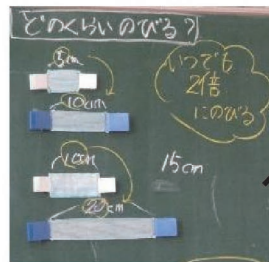 どのくらいのびる？
5cm
10cm
いつでも
2倍
にのびる
10cm
15cm
20cm